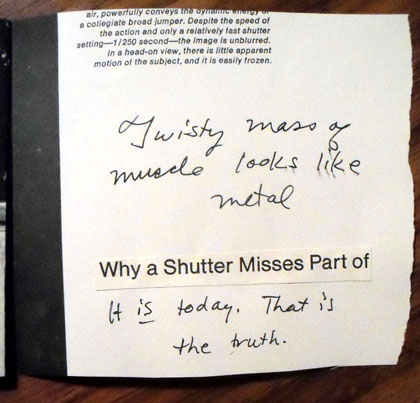 air, powerfully conveys the dynamic energy of
a collegiate broad jumper. Despite the speed of
the action and only a relatively fast shutter
setting—1/250 second—the image is unblurred.
In a head-on view, there is little apparent
motion of the subject, and it is easily frozen.
Twisty mass of
muscle looks like
metal
Why a Shutter Misses Part of
It is today. That is
the truth.